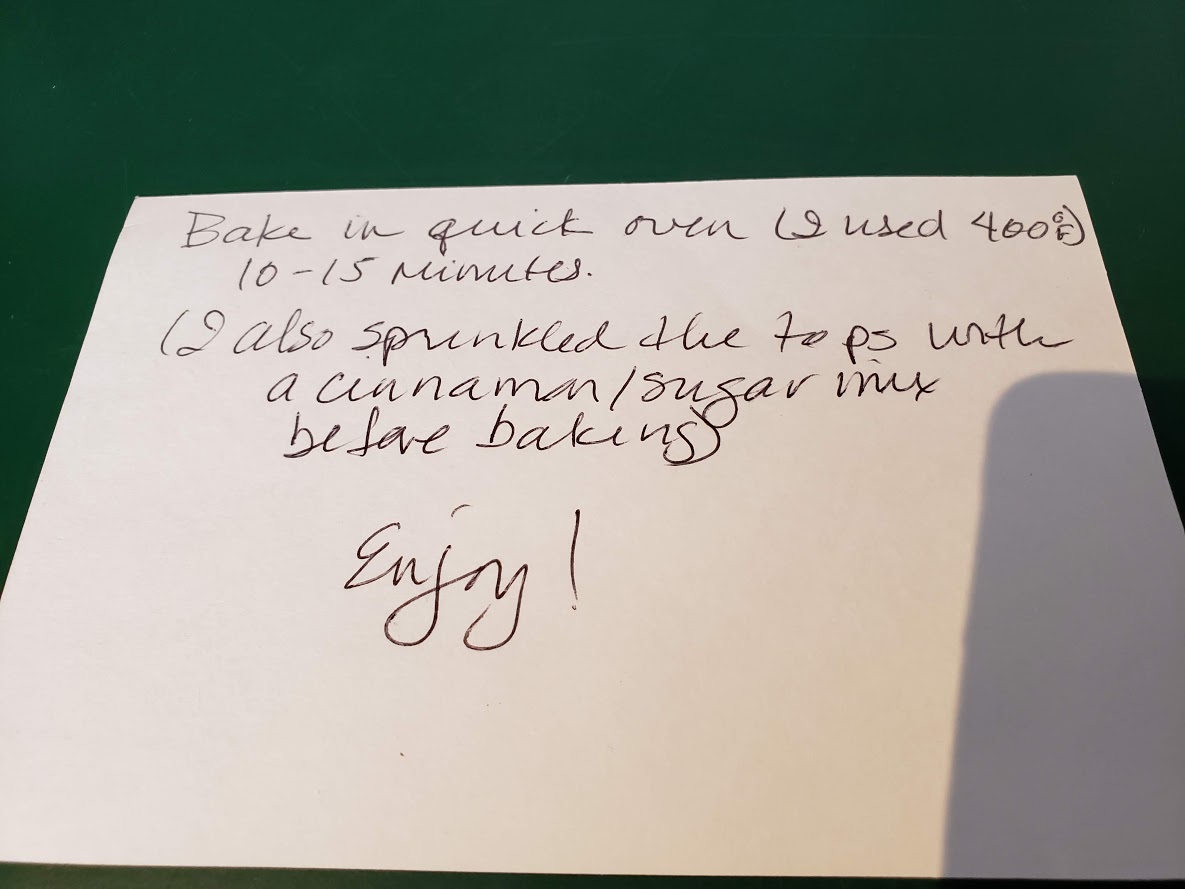 Bake in quick oven (I used 400°F)
10-15 minutes.
(I also sprinkled the tops with
a cinnamon/sugar mix
before baking)
Enjoy!